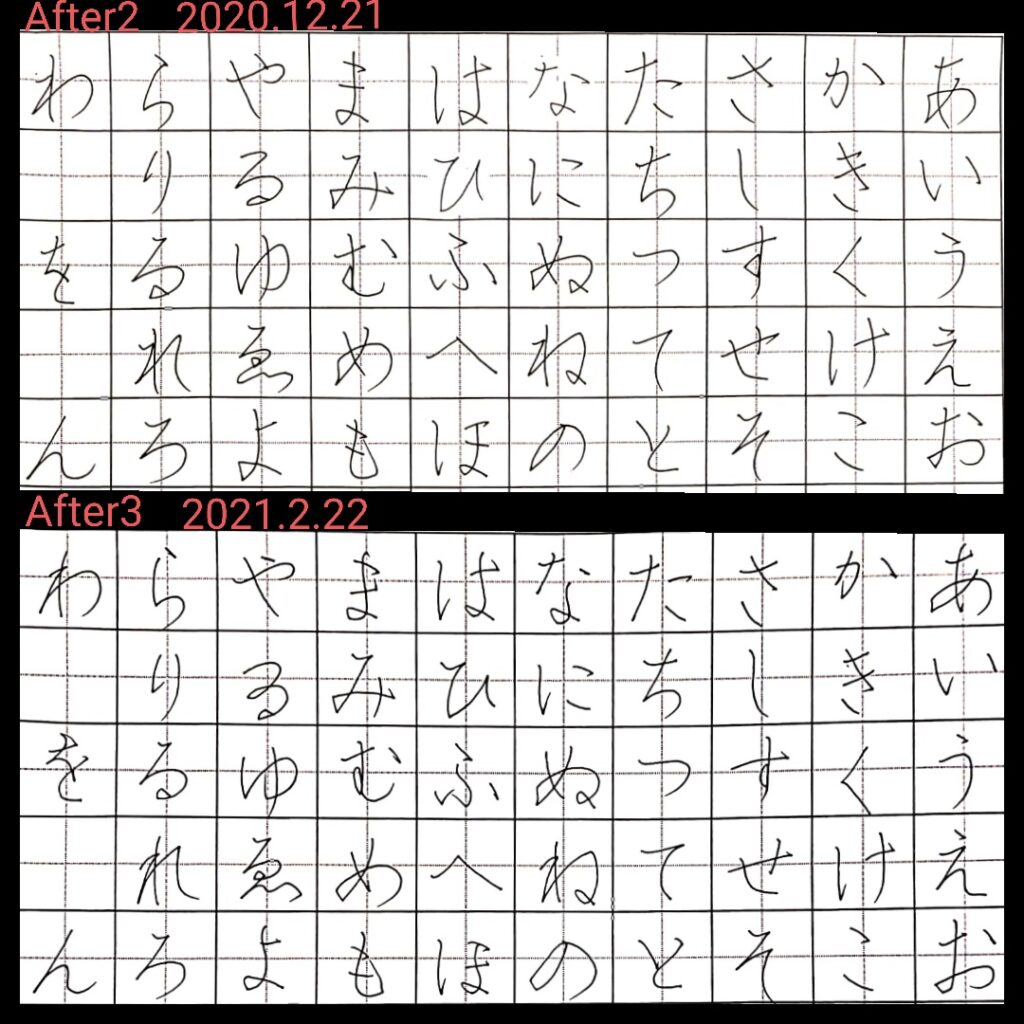 After2 2020.12.21
あいうえお
かきくけこ
さしすせそ
たちつてと
なにぬねの
はひふへほ
まみむめも
やゐゆゑよ
らりるれろ
わをん
After3 2021.2.22
あいうえお
かきくけこ
さしすせそ
たちつてと
なにぬねの
はひふへほ
まみむめも
やゐゆゑよ
らりるれろ
わをん